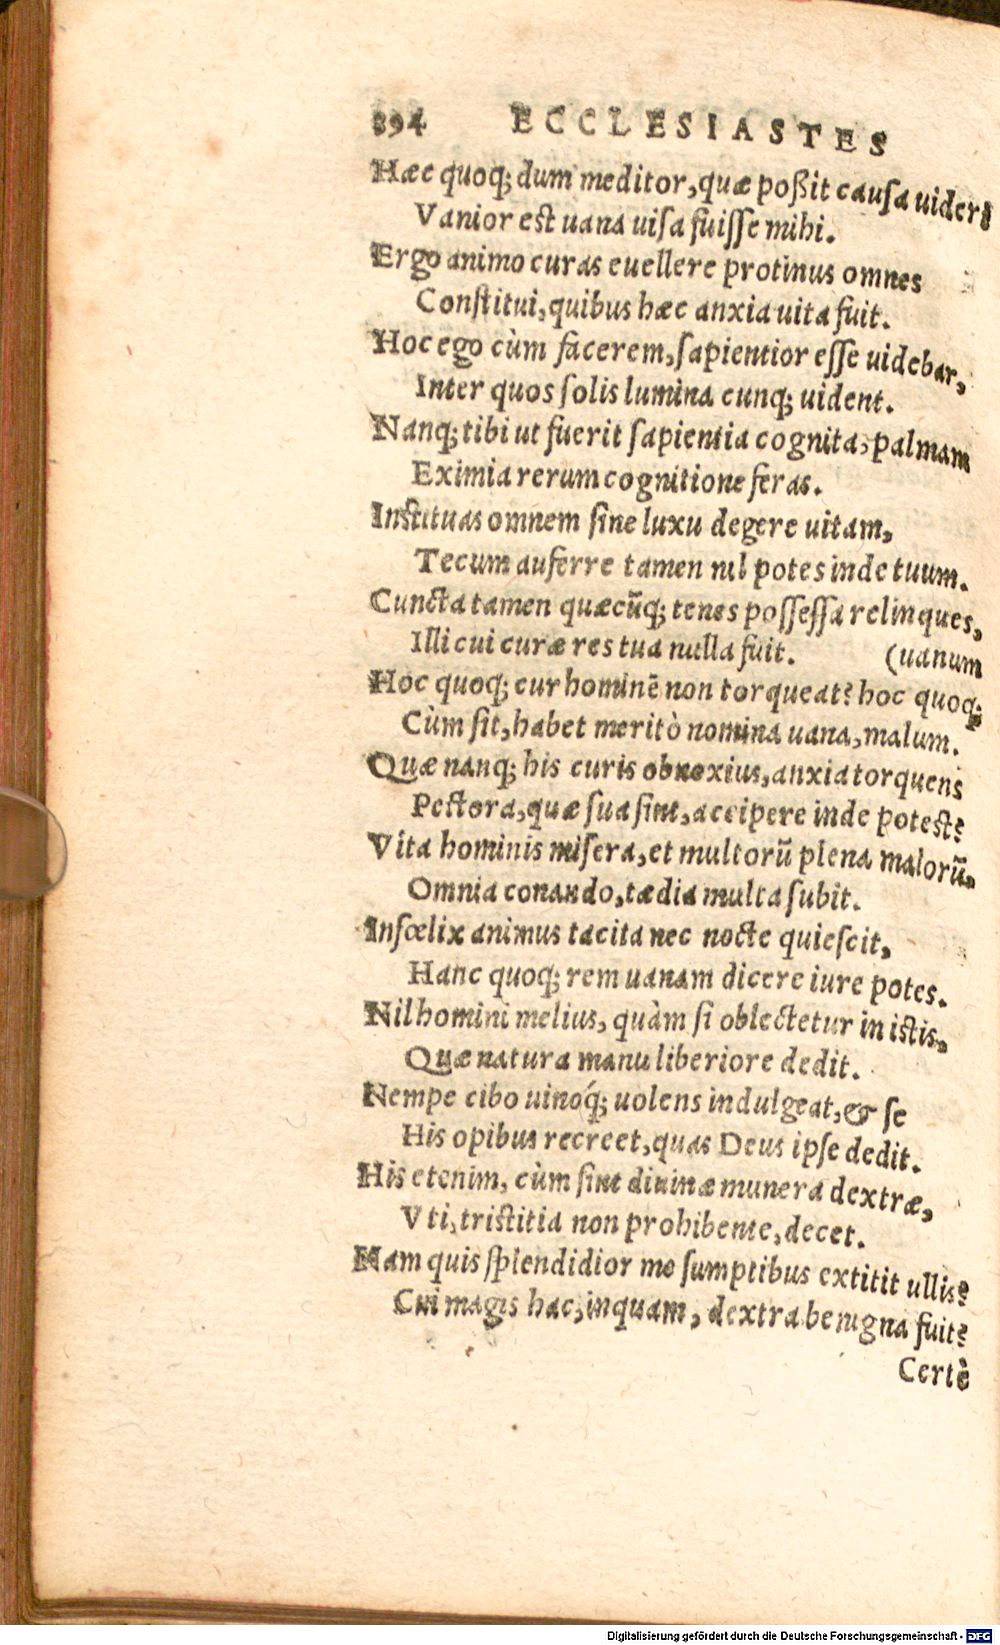 394 ECCLESIASTES
Hæc quoq; dum meditor, quæ poßit causa uideri
Vanior est uana uisa fuisse mihi.
Ergo animo curas euellere protinus omnes
Constitui, quibus hæc anxia uita fuit.
Hoc ego cùm facerem, sapientior esse uidebar,
Inter quos solis lumina cunq; uident.
Nanq; tibi ut fuerit sapientia cognita, palmam
Eximia rerum cognitione feras.
Instituas omnem sine luxu degere uitam,
Tecum auferre tamen nil potes inde tuum.
Cuncta tamen quæcũq; tenes possessa relinques,
Illi cui curæ res tua nulla fuit. (uanum
Hoc quoq; cur hominẽ non torqueat? hoc quoq;
Cùm sit, habet meritò nomina uana, malum.
Quæ nanq; his curis obnoxius, anxia torquens
Pectora, quæ sua sint, accipere inde potest?
Vita hominis misera, et multorũ plena malorũ,
Omnia conando, tædia multa subit.
Infœlix animus tacita nec nocte quiescit,
Hanc quoq; rem uanam dicere iure potes.
Nil homini melius, quàm si oblectetur in istis,
Quæ natura manu liberiore dedit.
Nempe cibo uinoq́; uolens indulgeat, & se
His opibus recreet, quas Deus ipse dedit.
His etenim, cùm sint diuinæ munera dextræ,
Vti, tristitia non prohibente, decet.
Nam quis splendidior me sumptibus extitit ullis?
Cui magis hac, inquam, dextra benigna fuit?
Certè
Digitalisierung gefördert durch die Deutsche Forschungsgemeinschaft - DFG